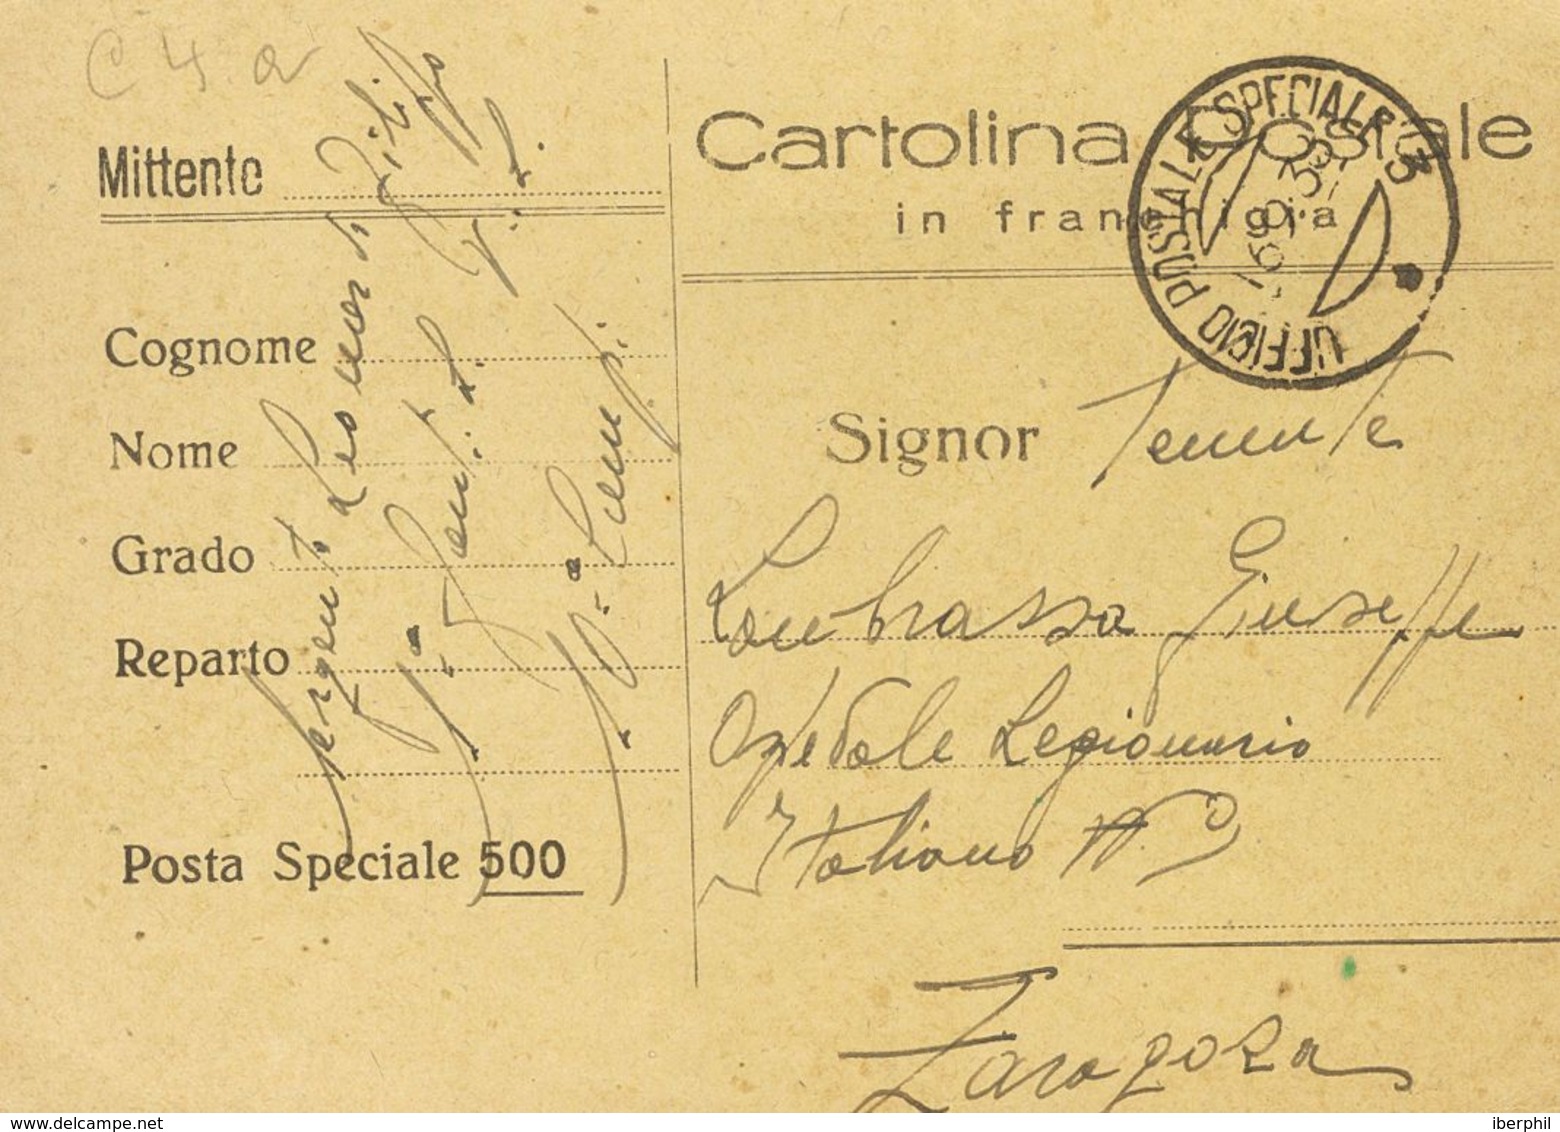 C 4 a
Mittente
Cognome
Nome
Grado
Reparto
Posta Speciale 500
Sergente Leonardi Filippo
Cartolina Postale
in franchigia
UFFICIO POSTALE SPECIALE 3
Signor Tenente
Lombrassa Giuseppe
Ospedale Legionario
Italiano
Zaragoza
www.delcampe.net
iberphil